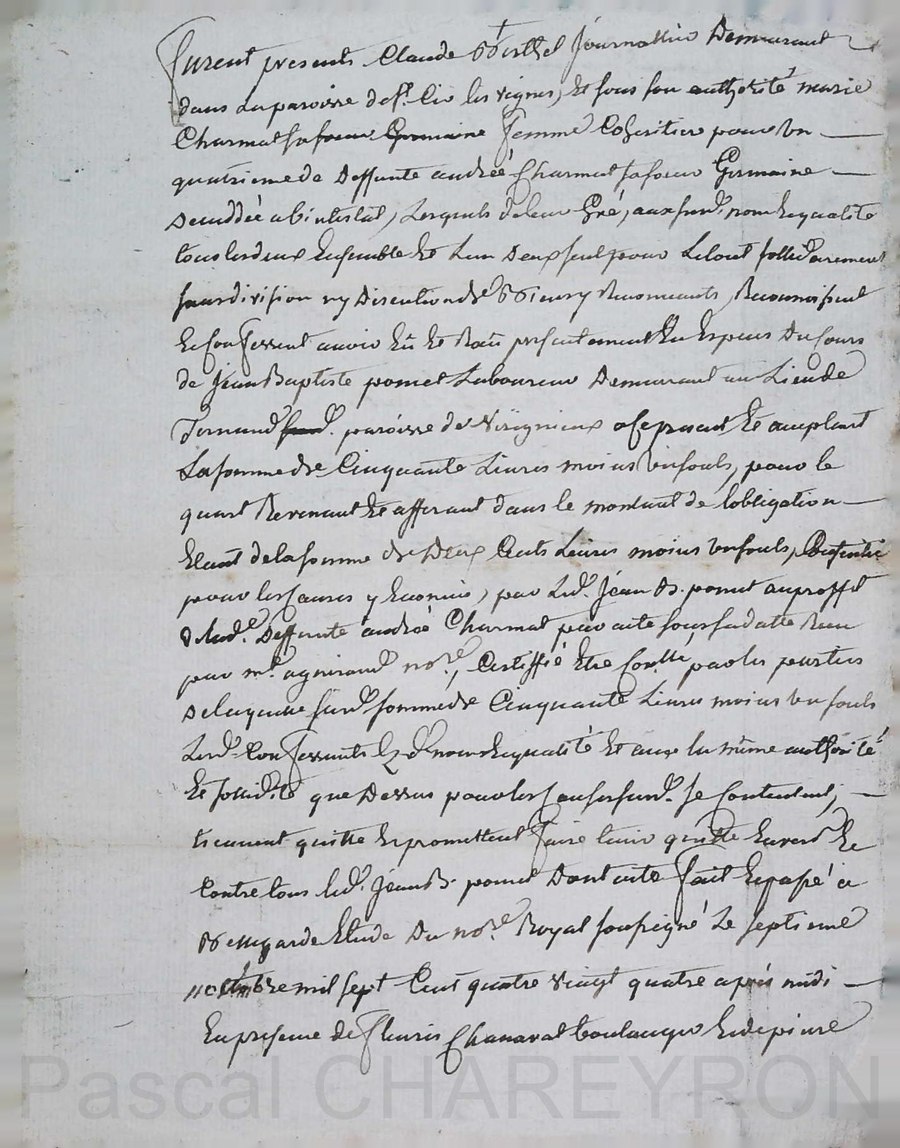 furent presents Claude Berthel Journallier Demeurant
dans la paroisse de st. Cir les vignes, et sous son authorité marie
Charmat sa soeur Germaine femme Coheritiere pour un
quatrieme de Deffunte andréé Charmat sa soeur Germaine
Decuddée abintestat, Lesquels de leur Gré, aux surd. noms et qualité
tous les deux Ensemble et L'un D'eux seul pour Le tout sollidairement
sans division ny Discution de Biens y Renonceants, Reconnoissent
et Confessent avoir Eü et Recu presentement En Especes Du Cours
de Jean Baptiste pomet Laboureur Demeurant au Lieu de
paroisse de Virignieux a ce present et acceptant
La somme de Cinquante Livres moins un souls, pour le
quart Revenant et afferant dans le montant de L'obligation
Etant de la somme de Deux Cents Livres moins un souls,
pour les Causes y Enoncés, par Led. Jean B. pomet au proffit
de Lad. Deffunte andréé Charmat par acte sous sa datte Recu
par me. nore., Certiffié Etre Conllé. par les parties
De laquelle surd. somme de Cinquante Livres moins un souls
Lesd. Confessants Esd. noms et qualité et aux la même authorité
et sollidité que Dessus pour les Causes surd. se Contentent,
tiennent quitte et promettent faire tenir quitte Envers et
Contre tous led. Jean B. pomet Dont acte fait et passé a
Bellegarde Etude Du nore. Royal soussigné Le septieme
octobre mil sept Cent quatre vingt quatre après midi
En presence de fleuris Chanaval boulanger et de pierre
Pascal CHAREYRON